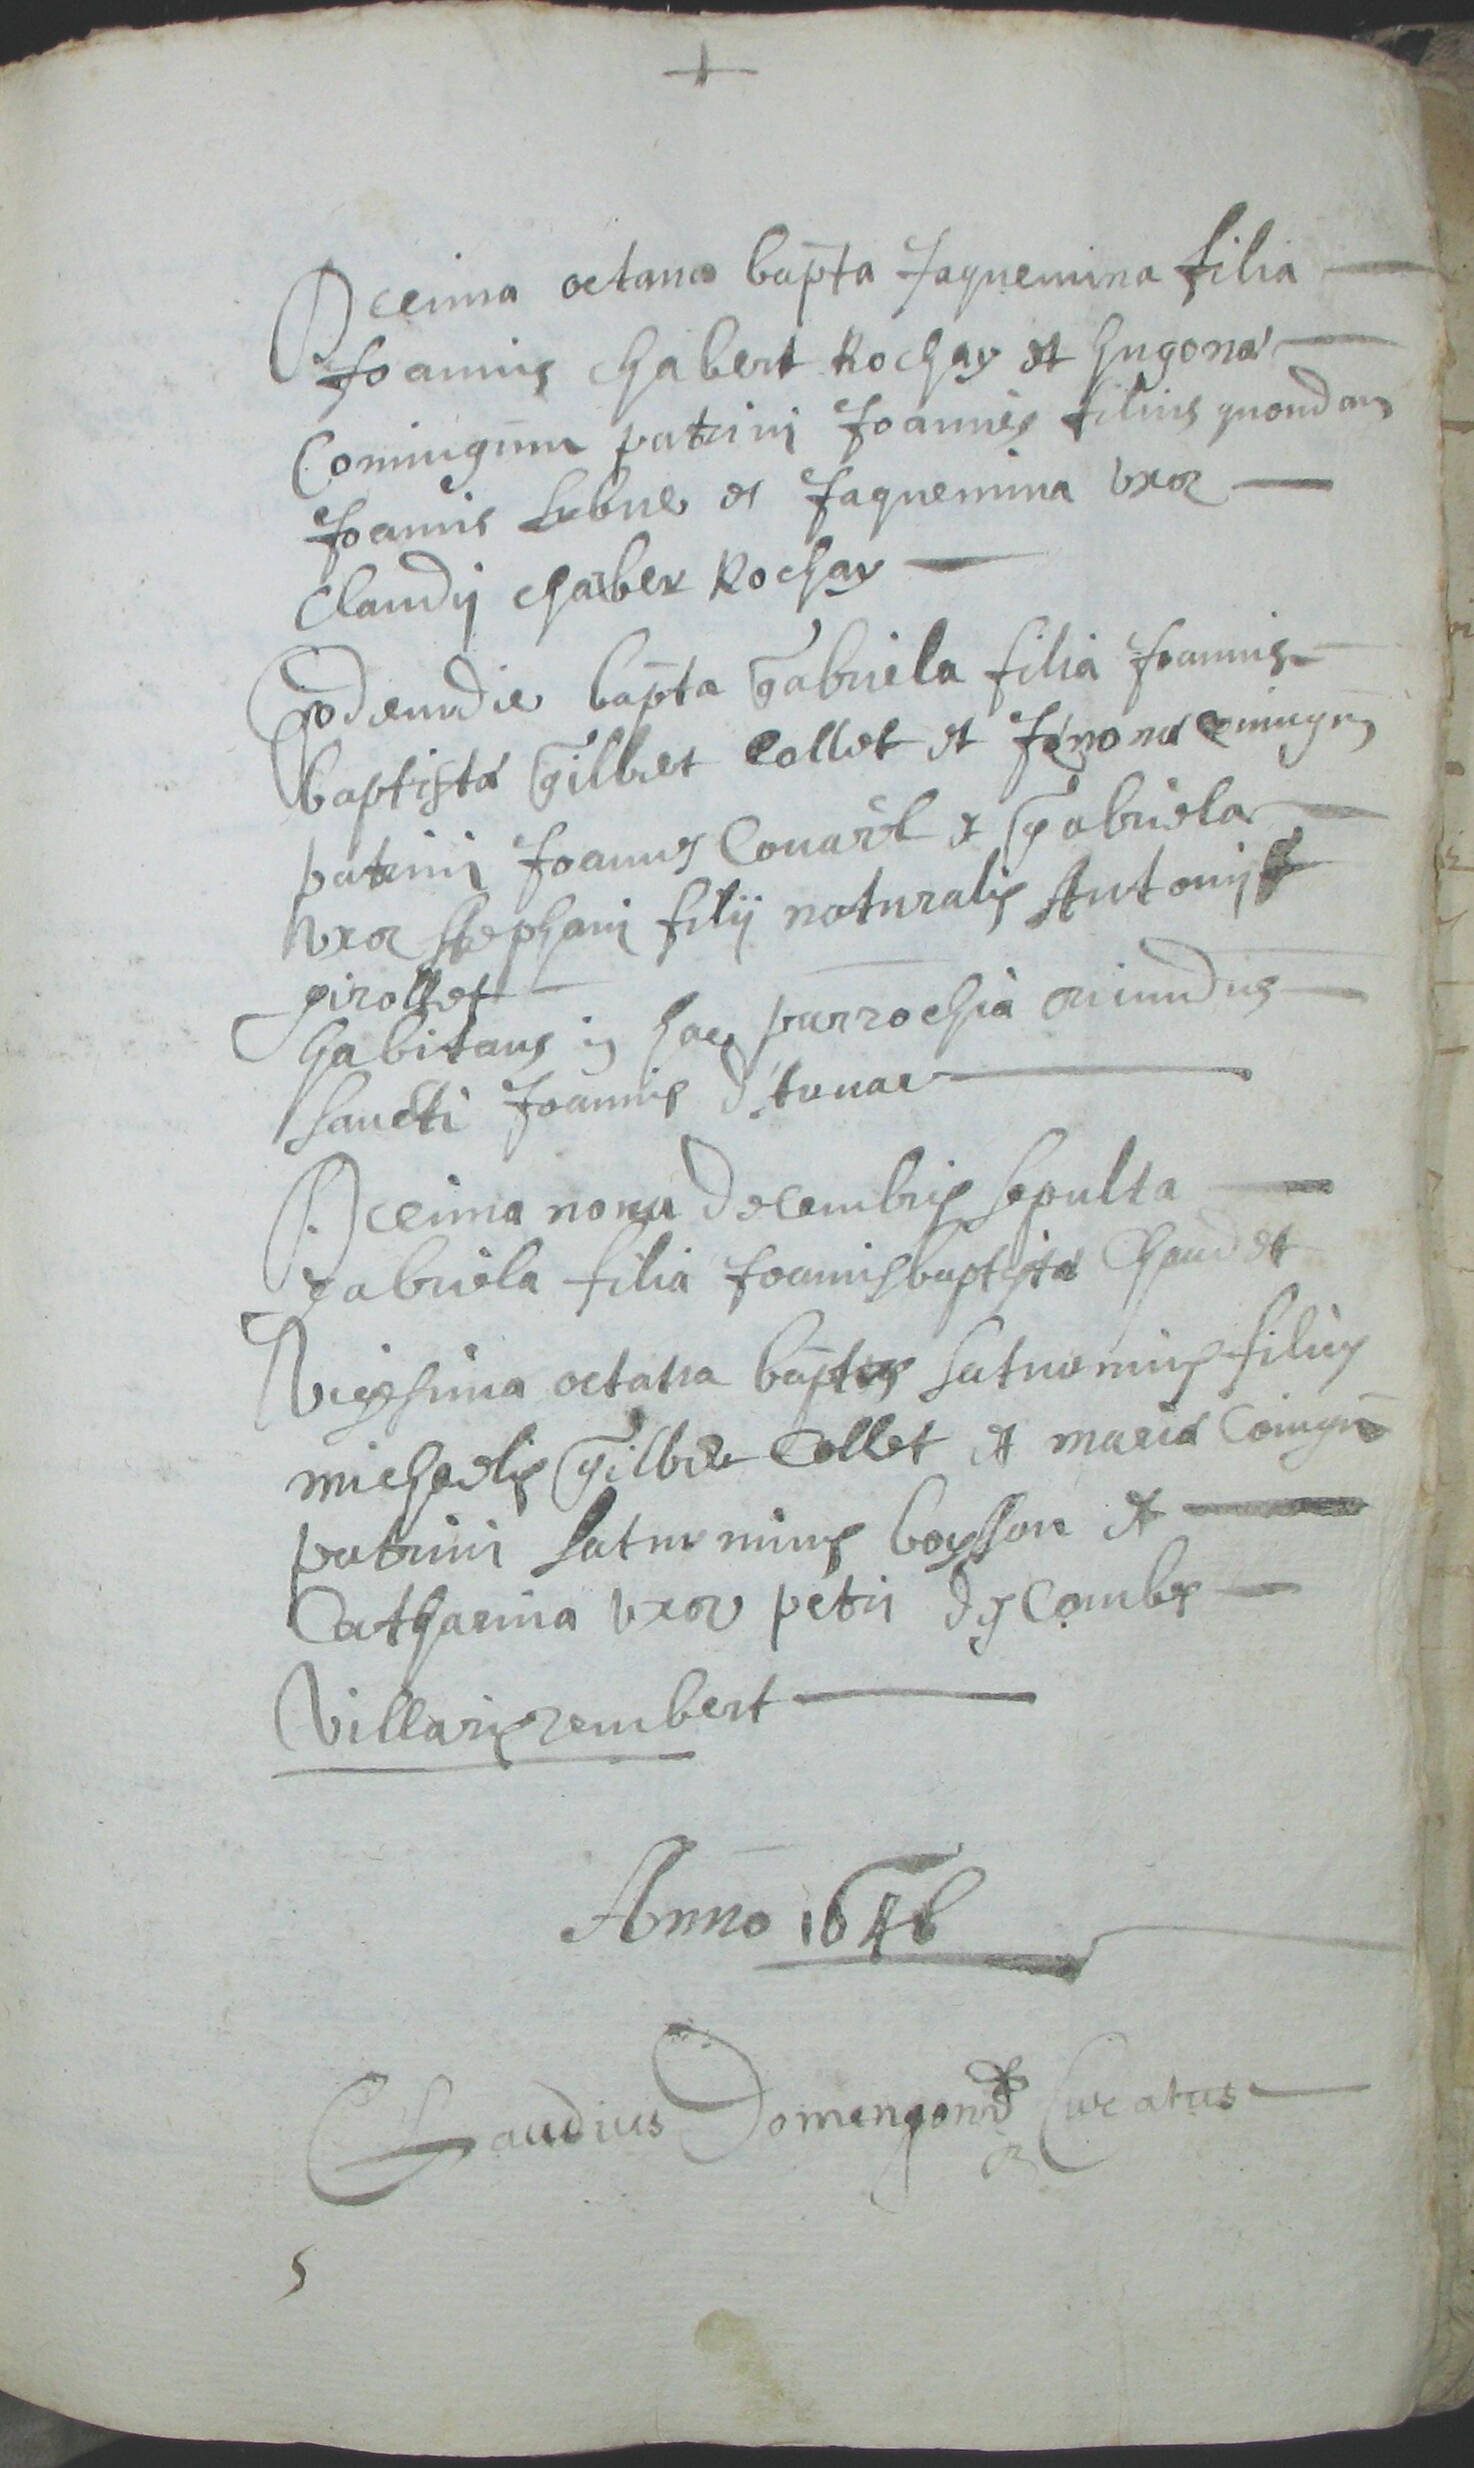 Decima octaua bapta Jaquemina filia
Joannis Chabert Rochay et hugona
Coniugum patrini Joannes filius quondam
Joannis et Jaquemina vxor
Claudij Chaber Rochay
Eodemdie bapta Gabriela filia Joannis
baptista Gilbret Collet et coniugum
patrini Joannes Couarel et Gabriela
vxor Stephani filij naturalis Antonij
girollet
habitans in hac parrochia oriundus
Sancti Joannis d'
Decima nona Decembris sepulta
gabriela filia Joannisbaptista Chaudet
Vigessima octaua baptus Saturninus filius
michaelis Gilbret Collet et maria Coniugum
patrini Saturninus boysson et
Catharina vxor petri des Combes
Villarirembert
Anno 1646
Claudius Domengon Curatus